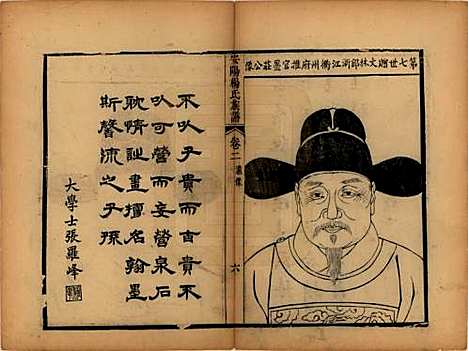 第七世贈文林郎浙江衢州府推官墨莊公像
安陽楊氏族譜
卷二
遺像
六
不以子貴而自貴不
以可營而妄營泉石
耽情詩畫擅名翰墨
斯馨流之子孫
大學士張羅峰